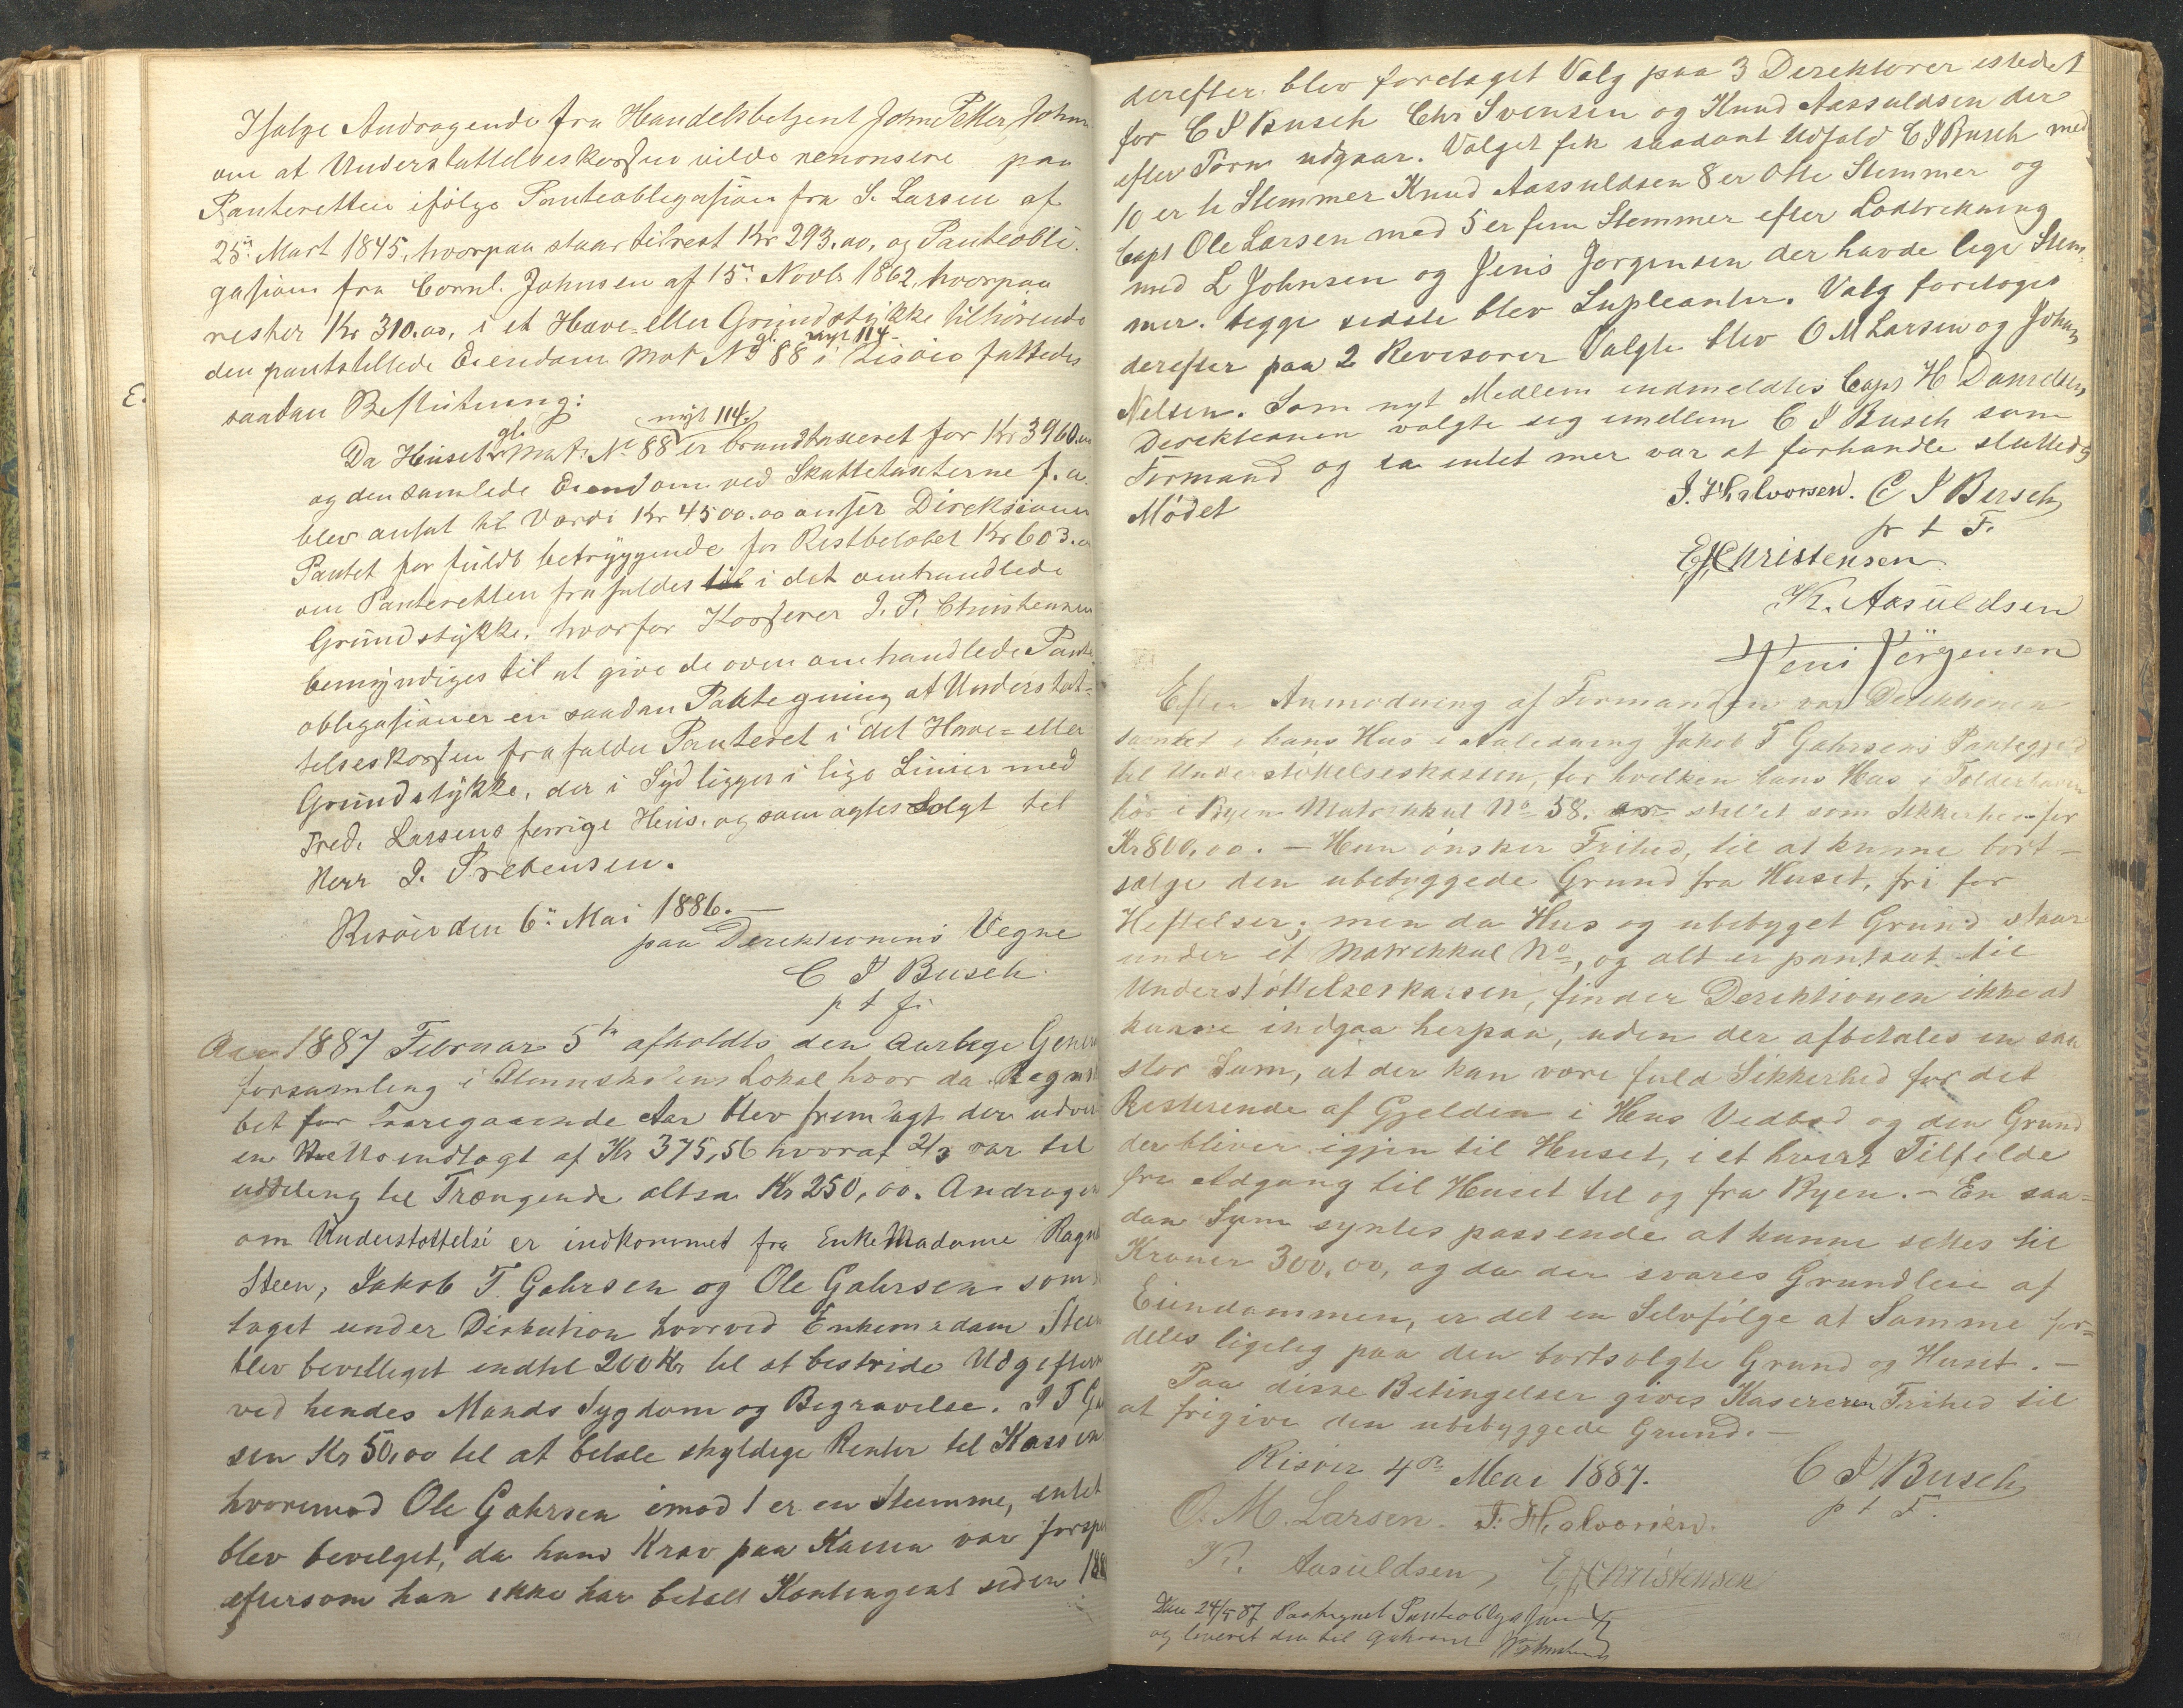 Ifølge Andragende fra Handelsbetjent John Petter John
om at Understøttelseskassen vilde renonsere paa
Panteretten ifølge Panteobligasjon fra S. Larsen af
25de Mart 1845, hvorpaa staar tilrest Kr 293.00, og Panteobli-
gasjonen fra Cornl. Johnsen af 15de Novbr 1862, hvorpaa
rester Kr 310.00, i et Have- eller Grundstykke tilhørende
gl. nyt 114
den pantstillede Eiendom Mat No 88 i Risøer fattedes
E.
saadan Beslutning:
gl. nyt 114
Da Huset Mat. No 88 er brandtaxeret for Kr 3960.00
og den samlede Eiendom ved Skattetaxterne f. a.
blev ansat til Værdi Kr 4500.00 anser Direksionen
Pantet for fuldt betryggende for Restbeløbet Kr 603.00
om Panteretten frafaldes til i det omhandlede
Grundstykke, hvorfor Kasserer J. P. Christensen
bemyndiges til at give de oven omhandlede Pante-
obligasjoner en saadan Paategning at Understøt-
telseskassen frafalder Panteret i det Have- eller
Grundstykke, der i Syd ligger i lige Linier med
Fred. Larsens forrige Hus, og som agtes Solgt til
Herr J. Prebensen.
Risøer den 6te Mai 1886.
paa Derektionens Vegne
C J Busch
p t f.
Aar 1887 Februar 5te afholdts den Aarlege Gener
forsamling i Almuskolens Lokal hvor da Regns
bet for Foregaaende Aar blev fremlagt der udvi
en Nettoindtægt af Kr 375,56 hvoraf 2/3 var til
uddeling til Trængende altsa Kr 250,00. Andragen
om Understøttelse er indkommet fra Enke Madame Ragn
Steen, Jakob T. Gahrsen og Ole Gahrsen som
taget under Diskution hvorved Enkemadam Steen
blev bevilleget indtil 200 Kr til at bestride Udgifter
ved hendes Mands Sygdom og Begravelse. J T Ga
sen Kr 50,00 til at betale skyldige Renter til Kassen
hvoremod Ole Gahrsen imod 1 er en Stemme, intet
blev bevilget, da hans Krav paa Kassen var forspi
eftersom han ikke har betalt Kontengent siden 188
derefter blev foretaget Valg paa 3 Derektører istedet
for C J Busch Chr Svensen og Knud Aassuldsen der
efter Törn udgaar. Valget fik saadant Udfald C J Busch med
10 er ti Stemmer Knud Aassuldsen 8 er Otte Stemmer og
Capt Ole Larsen med 5 er fem Stemmer efter Lodtrekning
med L Johnsen og Jens Jorgensen der havde lige Stem-
mer. begge sidste blev Supleanter. Valg foretoges
derefter paa 2 Revisorer Valgte blev O M Larsen og Johan
Nelsen. Som nyt Medlem indmeldtes Capt H Danielsen,
Derektionen valgte seg imellem C J Busch som
Formand og da intet mer var at forhandle sluttedes
Mödet
J. Halvorsen. C J Busch
p t F.
E Christensen
K. Aasuldsen
Jens Jörgensen
Efter Anmodning af Formanden var Derektionen
samlet i hans Hus i Anledning Jakob T Gahrsens Pantegjeld
til Understøttelseskassen, for hvilken hans Hus i
her i Byen Matrikkul No 58. er stillet som Sikkerhed for
Kr 800,00. – Han ønsker Frihed, til at kunne bort-
sælge den ubebyggede Grund fra Huset, fri for
Heftelser; men da Hus og ubebyget Grund staar
under et Matrikkul No, og alt er pantsat til
Understøttelseskassen, finder Derektionen ikke at
kunne indgaa herpaa, uden der afbetales en saa
stor Sum, at der kan være fuld Sikkerhed for det
Resterende af Gjelden i Hus Vedbod og den Grund
der bliver igjen til Huset, i et hvert Tilfelde
fri Adgang til Huset til og fra Byen. – En saa-
dan Sum syntes passende at kunne settes til
Kroner 300,00, og da der svares Grundleie af
Eiendommen, er det en Selvfølge at Samme for-
deles ligelig paa den bortsolgte Grund og Huset. –
Paa disse Betingelser gives Kasereren Frihed til
at frigive den ubebyggede Grund. –
Risøer 4de Mai 1887.
C J Busch
p t F.
O. M. Larsen. J. Halvorsen.
K. Aasuldsen, E Christensen
Den 24/5 87 Paategnet Panteobligasjonen
og leveret den til Gahrsen